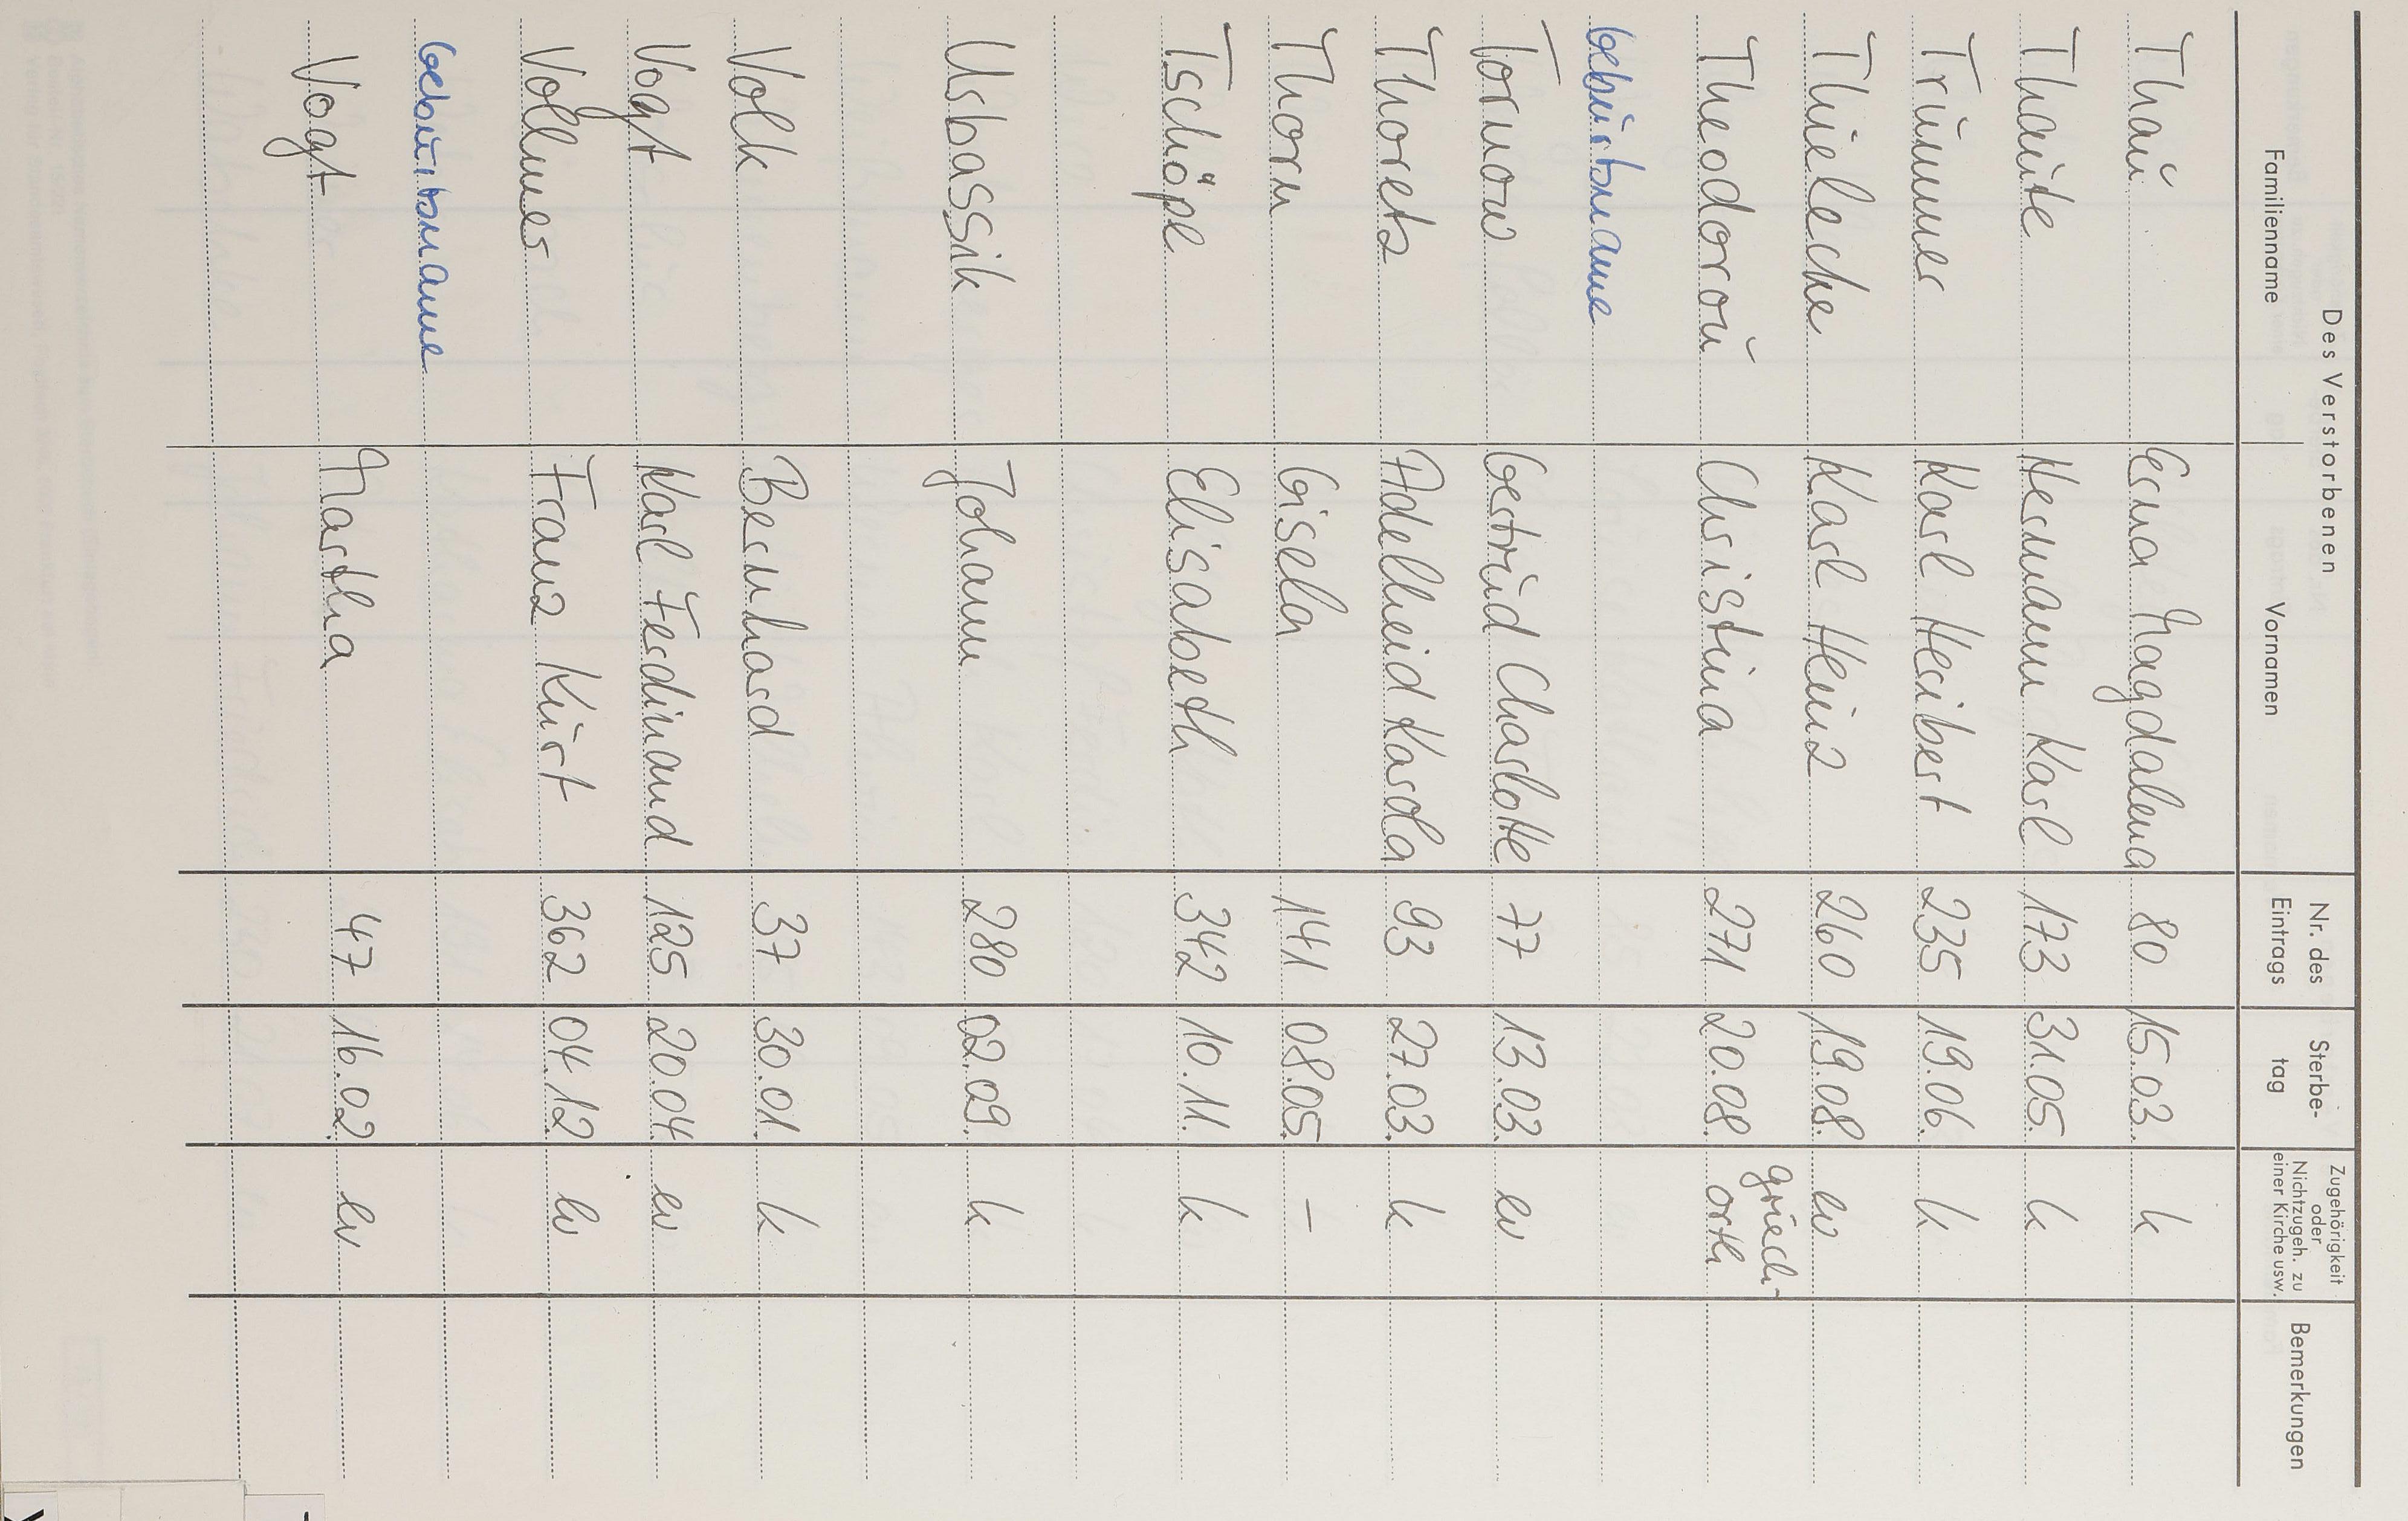 Des Verstorbenen
Familienname Vornamen Nr. des Eintrags Sterbe-tag Zugehörigkeit oder Nichtzugeh. zu einer Kirche usw. Bemerkungen
Thau Erna Magdalena 80 15.03. k
Thaute Hermann Karl 173 31.05. k
Trümmer Karl Heribert 235 19.06. k
Thielecke Karl Heinz 260 19.08. ev
Theodorou Christina 271 20.08. griech.-orth.
Geburtsname
Tornow Gertrud Charlotte 77 13.03. ev
Thorets Adelheid Karola 93 27.03. k
Thorn Gisela 141 08.05. –
Tschöpe Elisabeth 342 10.11. k
Urbassik Johann 280 02.09. k
Volk Bernhard 37 30.01. k
Vogt Karl Ferdinand 125 20.04. ev
Vollmer Franz Kurt 362 04.12. ev
Geburtsname
Vogt Martha 47 16.02. ev